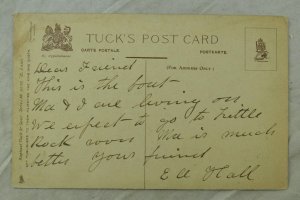 TUCK'S POST CARD
CARTE POSTALE
POSTKARTE.
(For Address Only.)
Dear Friend
This is the boat
Ma & I are living on
We expect to go to Little
Rock soon Ma is much
better your friend
E A Hall